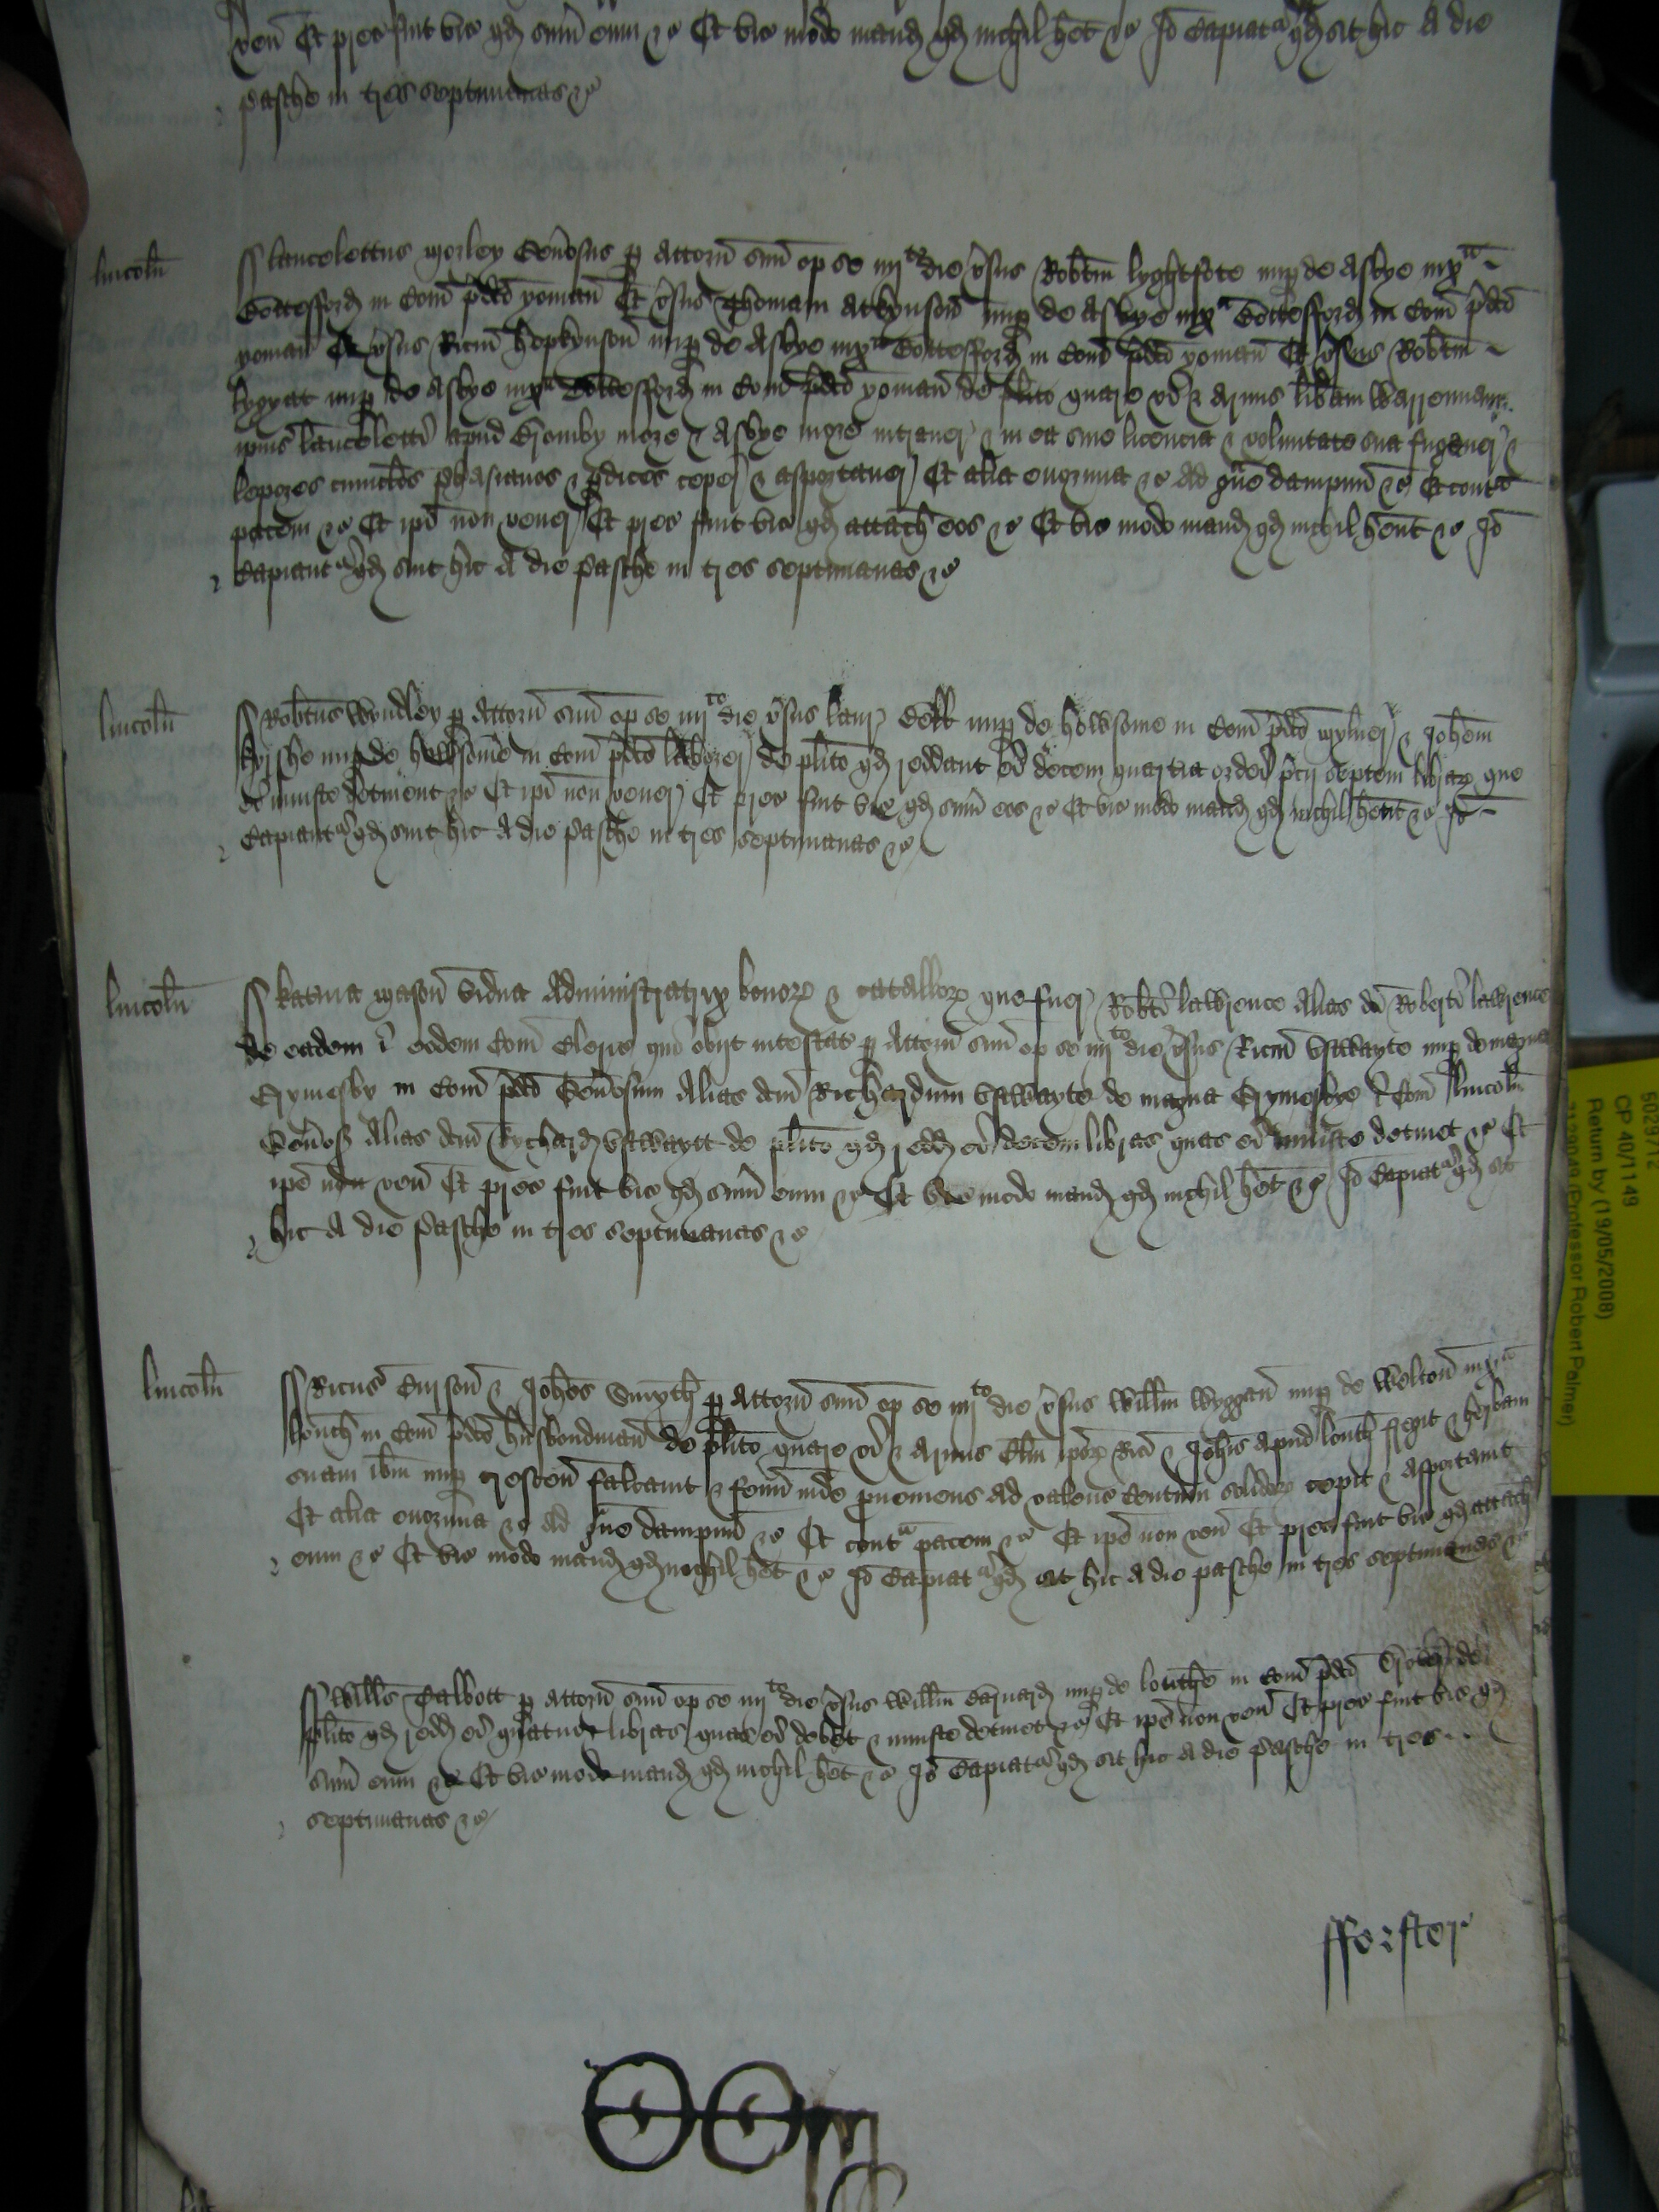 ven Et prec fuit vic qd sum eum &c Et vic modo mand qd nichil het &c Io Capiat qd sit hic A die
pasche in tres septimanas &c
lincoln
Lancelottus Morley Generosus p Attorn suu op se iiijto die vsus Robtm lyghtfote nup de Asbye iuxta
Bottesford in Com pdco yoman Et vsus Thomam Atkynson nup de Asbye iuxa Bottesford in Com pdco
yoman Et vsus Ricm hopkynson nup de Asbye iuxta Bottesford in Com pdco yoman Et vsus Robtm
lygyat nup de Asbye iuxa Bottesford in Com pdco yoman de plito quare vi & Armis libam Warrennam
ipius lancelotti apud Bromby more & Asbye more intrauer & in ea sine licencia & voluntate sua fugauer &
lepores cuniclos phasianos & pdices ceper & asportauer Et alia enormia &c Ad gue dampnu &c Et conta
pacem &c Et ipi non vener Et prec fuit vic qd attach eos &c Et vic modo mand qd nichil hent &c Io
Capiant qd sint hic A die Pasche in tres septimanas &c
lincoln
Robtus Wyndley p Attorn suu op se iiijto die vsus laur nup de howsome in Com pdco mylner & Johem
nup de howsome in Com pdco laborer de plito qd reddant ei decem quartia ordei pcii septem librar que
ei iniuste detinent &c Et ipi non vener Et prec fuit vic qd sum eos &c Et vic modo mand qd nichil hent &c Io
Capiant qd sint hic A die Pasche in tres septimanas &c
lincoln
Katina Mason vidua Administratrix bonor & catallor que fuer Robti lawrence Alias dci Roberti lawrence
de eadem i eodem Com Clerici qui obijt intestat p Attorn suu op se iiijto die vsus Ricm Vstwayte nup de magna
Grymesby in Com pdco Generosum Alias dcm Richardum Vstwayte de magna Grymesbye i Com lincoln
Generos Alias dcm Rychard Vstwaytt de plito qd redd ei decem libras quas ei iniuste detinet &c Et
ipe non ven Et prec fuit vic qd sum eum &c Et vic modo mand qd nichil het &c Io Capiat qd sit
hic A die Pasche in tres septimanas &c
lincoln
Ricus & Johes Smyth p Attorn suu op se iiijto die vsus Willm Wyggan nup de Welton iuxta
louth in Com pdco husbondman de plito quare vi & Armis Clm ipor Rici & Johis apud louth fregit & herbam
suam ibm nup crescen falcauit & fenu inde pueniens Ad valenc Centum solidor cepit & Asportauit
Et alia enormia &c Ad gue dampnu &c Et conta pacem &c Et ipe non ven Et prec fuit vic qd attach
eum &c Et vic modo mand qd nichil het &c Io Capiat qd sit hic A die pasche in tres septimanas &c
Willus Talbott p Attorn suu op se iiijto die vsus Willm nup de louthe in Com pdco de
plito qd redd ei quatuor libras quas ei debet & iniuste detinet &c Et ipe non ven Et prec fuit vic qd
sum eum &c Et vic modo mand qd nichil het &c Io Capiat qd sit hic A die Pasche in tres
septimanas &c
fforster
5029712
CP 40/1149
Return by (19/05/2008)
(Professor Robert Palmer)